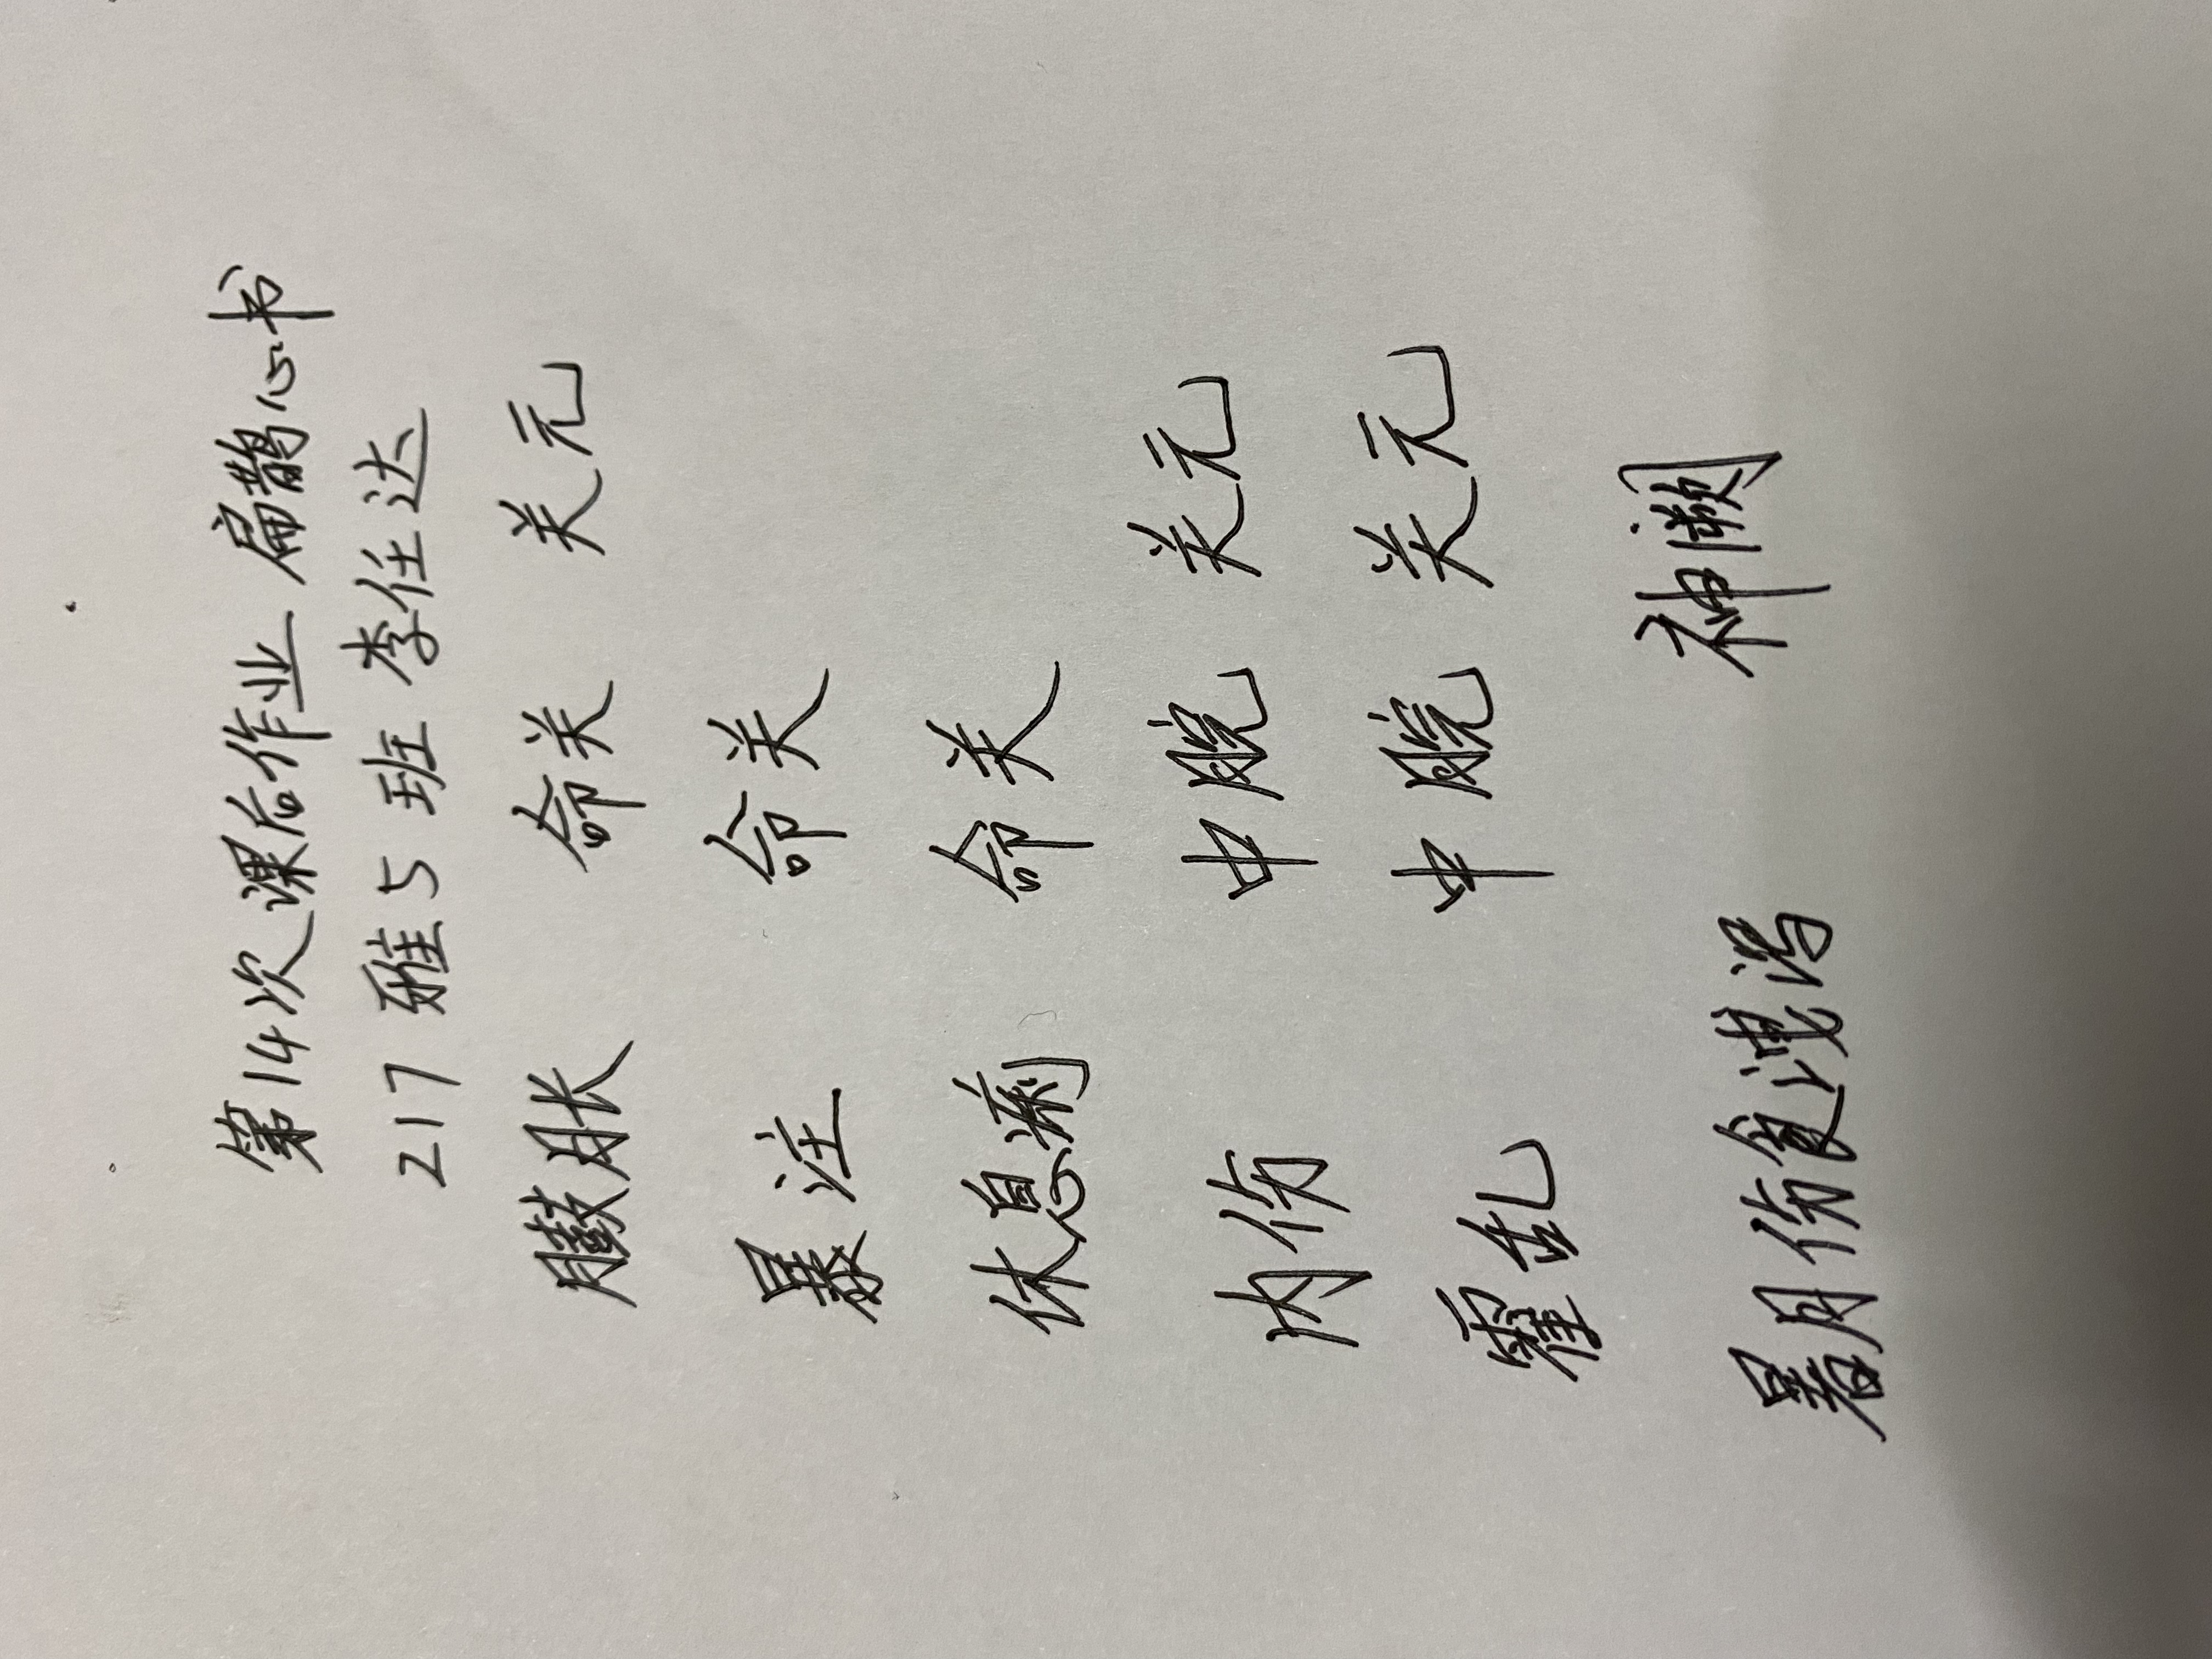 第14次课后作业 扁鹊心书
217 雅5班 李任达
臌胀 命关 关元
暴注 命关
休息痢 命关
内伤 中脘 关元
霍乱 中脘 关元
暑月伤食泄泻 神阙